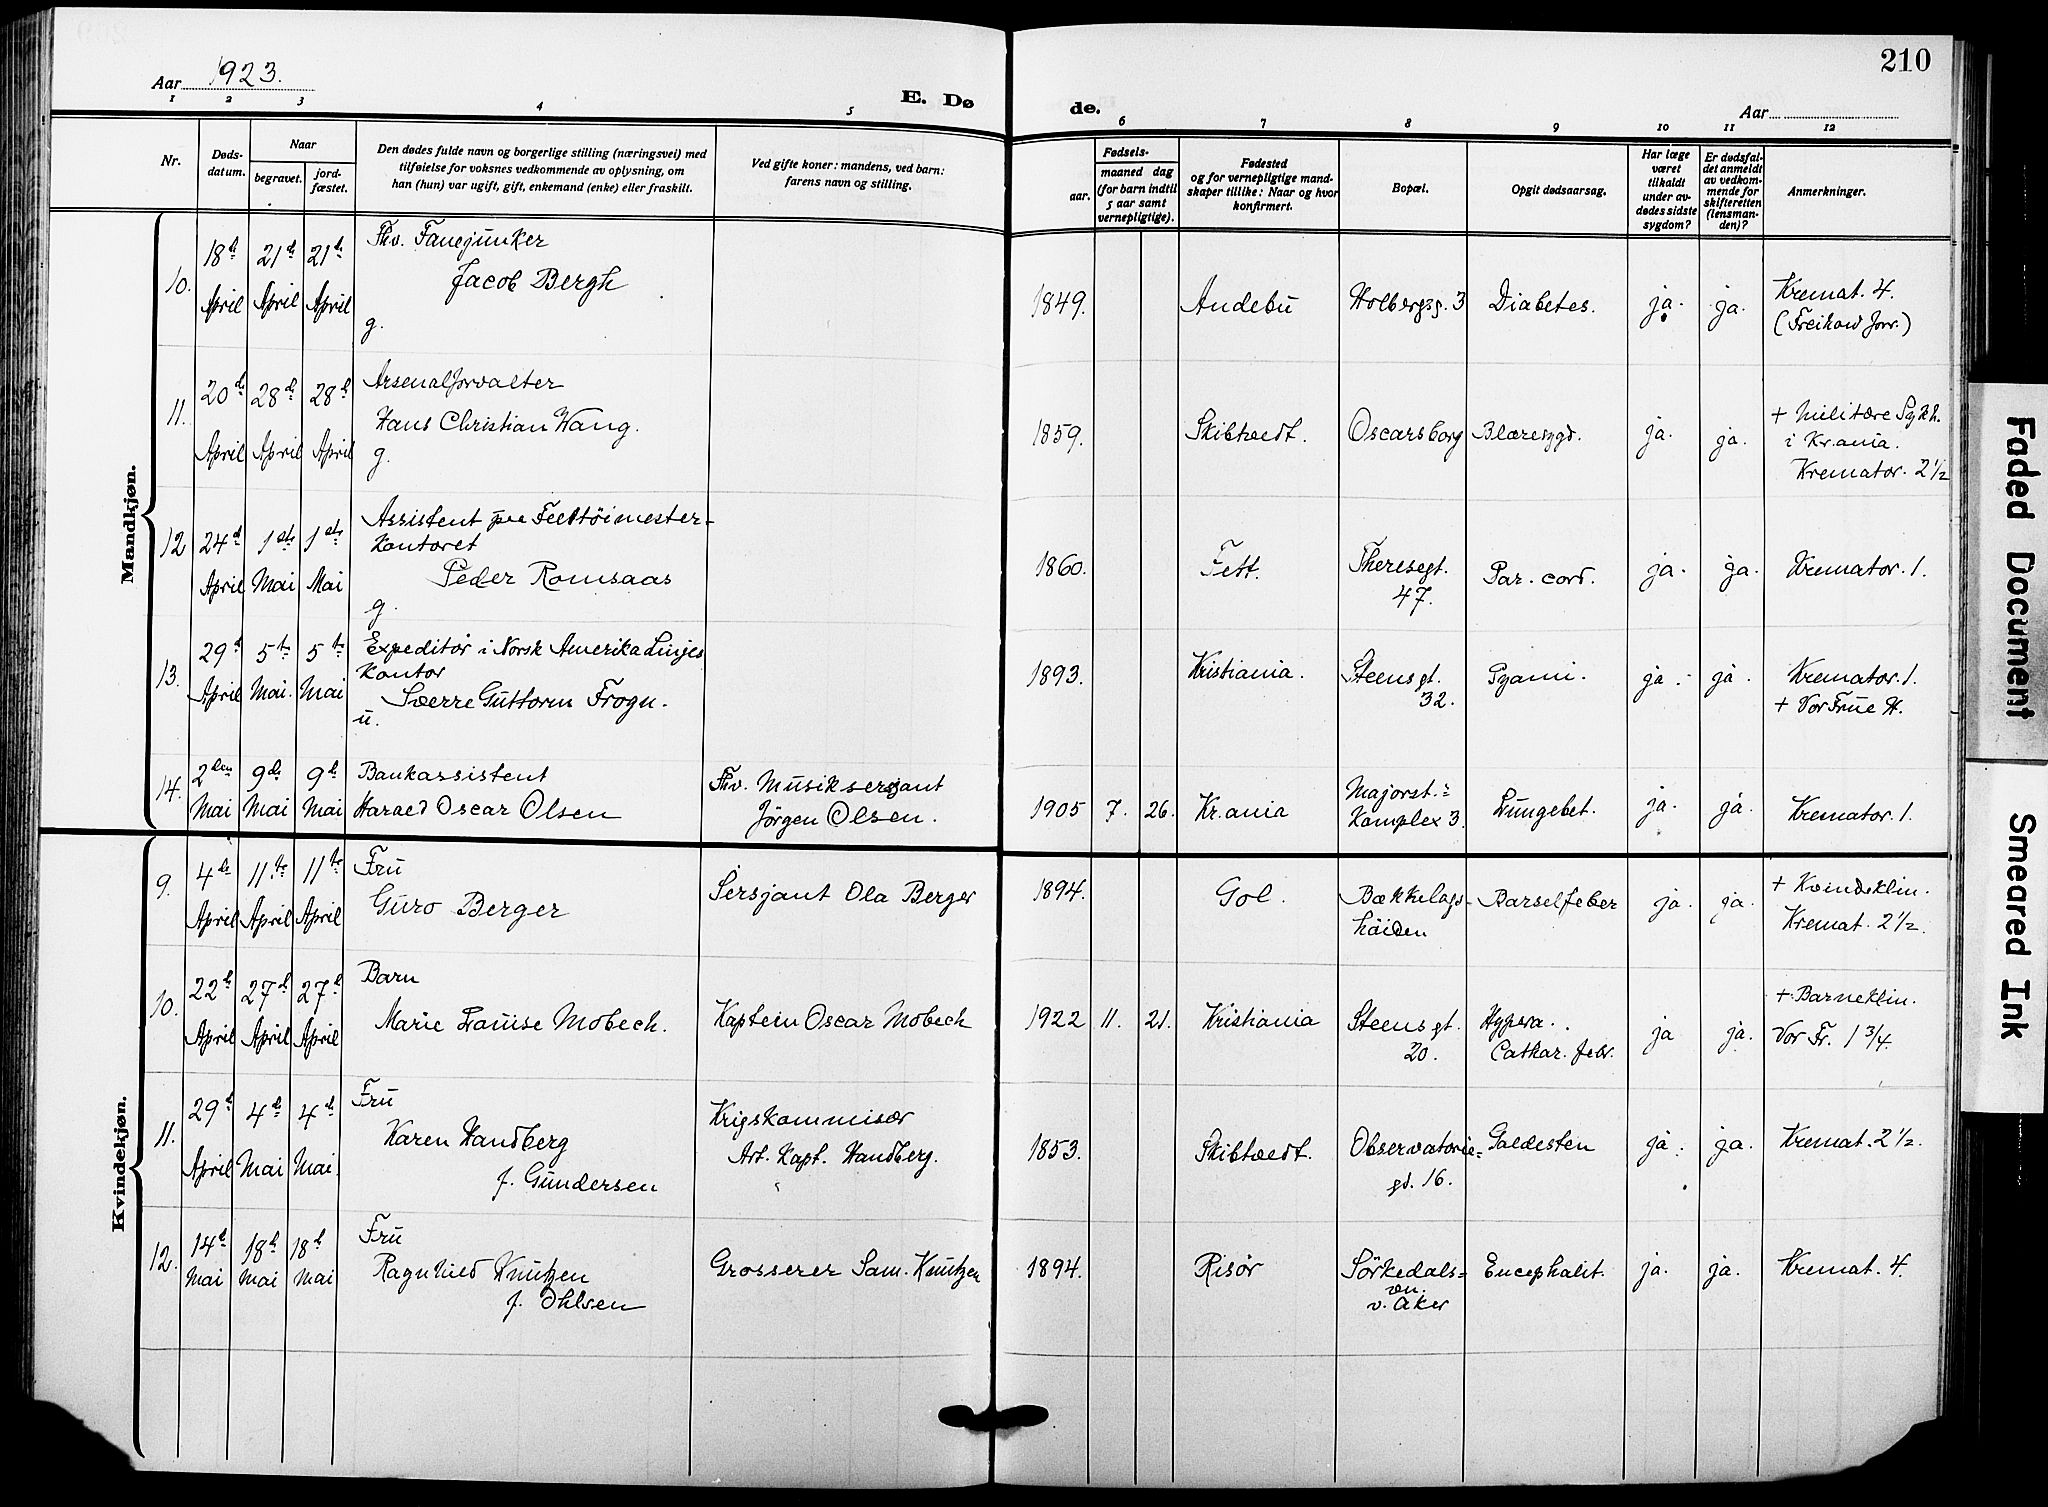 210
Aar 1923.
E. Dø
de.
Aar
1 2 3 4 5 6 7 8 9 10 11 12
Nr.
Døds-
datum.
Naar
begravet.
jord-
fæstet.
Den dødes fulde navn og borgerlige stilling (næringsvei) med
tilføielse for voksnes vedkommende av oplysning, om
han (hun) var ugift, gift, enkemand (enke) eller fraskilt.
Ved gifte koner: mandens, ved barn:
farens navn og stilling.
Fødsels-
aar.
maaned dag
(for barn indtil
5 aar samt
vernepligtige).
Fødested
og for vernepligtige mand-
skaper tillike: Naar og hvor
konfirmert.
Bopæl.
Opgit dødsaarsag.
Har læge
været
tilkaldt
under av-
dødes sidste
sygdom?
Er dødsfal-
det anmeldt
av vedkom-
mende for
skifteretten
(lensman-
den)?
Anmerkninger.
Mandkjøn.
10. 18d April 21d April 21de April
Fhv. Fanejunker
Jacob Bergh
g.
1849. Andebu Holbergsg. 3 Diabetes. ja. ja.
Kremat. 4.
(Treikow forr.)
11. 20de April 28de April 28d April
Arsenalforvalter
Hans Christian Wang.
g.
1859. Skibtvedt. Oscarsborg Blæresygd. ja. ja.
+ Militære Sykh.
i Kr.ania.
Kremator. 2 1/2
12 24d April 1ste Mai 1ste Mai
Assistent paa Felttöimester-
kontoret
Peder Romsaas
g.
1860. Fett. Theresegt.
47.
Par. cord. ja. ja. Kremator. 1.
13. 29d April 5te Mai. 5te Mai
Expeditør i Norsk Amerika Linjes
Kontor
Sverre Guttorm Frogn.
u.
1893. Kristiania. Steensgt.
32.
Pyami. ja. ja.
Kremator. 1.
+ Vor Frue H.
14. 2den Mai 9de Mai 9d Mai
Bankassistent
Harald Oscar Olsen
Fhv. Musiksersjant
Jørgen Olsen.
1905 7. 26. Kr.ania
Majorst.=
Komplex 3.
Lungebet. ja. ja. Kremator. 1.
Kvindekjøn.
9. 4de April 11.te April 11te April
Fru
Guro Berger
Sersjant Ola Berger
1894. Gol.
Bækkelags-
höiden
Barselfeber ja. ja.
+ Kvindeklin.
Kremat. 2 1/2.
10. 22d April 27d April 27d April
Barn
Marie Louise Mobech.
Kaptein Oscar Mobech
1922 11. 21. Kristiania
Steensgt.
20.
Cathar. febr.
ja ja.
+ Barneklin.
Vor Fr. 1 3/4.
11. 29d April 4de Mai 4de Mai.
Fru
Karen Handberg
f. Gundersen
Krigskommisær
Art. Kapt. Handberg.
1853. Skibtvedt.
Observatorie=
gt. 16.
Galdesten ja. ja. Kremat. 2 1/2.
12. 14d Mai 18d Mai 18d Mai
Fru
Ragnhild Knutzen
f. Ohlsen
Grosserer Sam. Knutzen
1894. Risør
Sörkedals=
vn.
v. Aker
Encephalit. ja. ja. Kremat. 4.
Faded Document
Smeared Ink